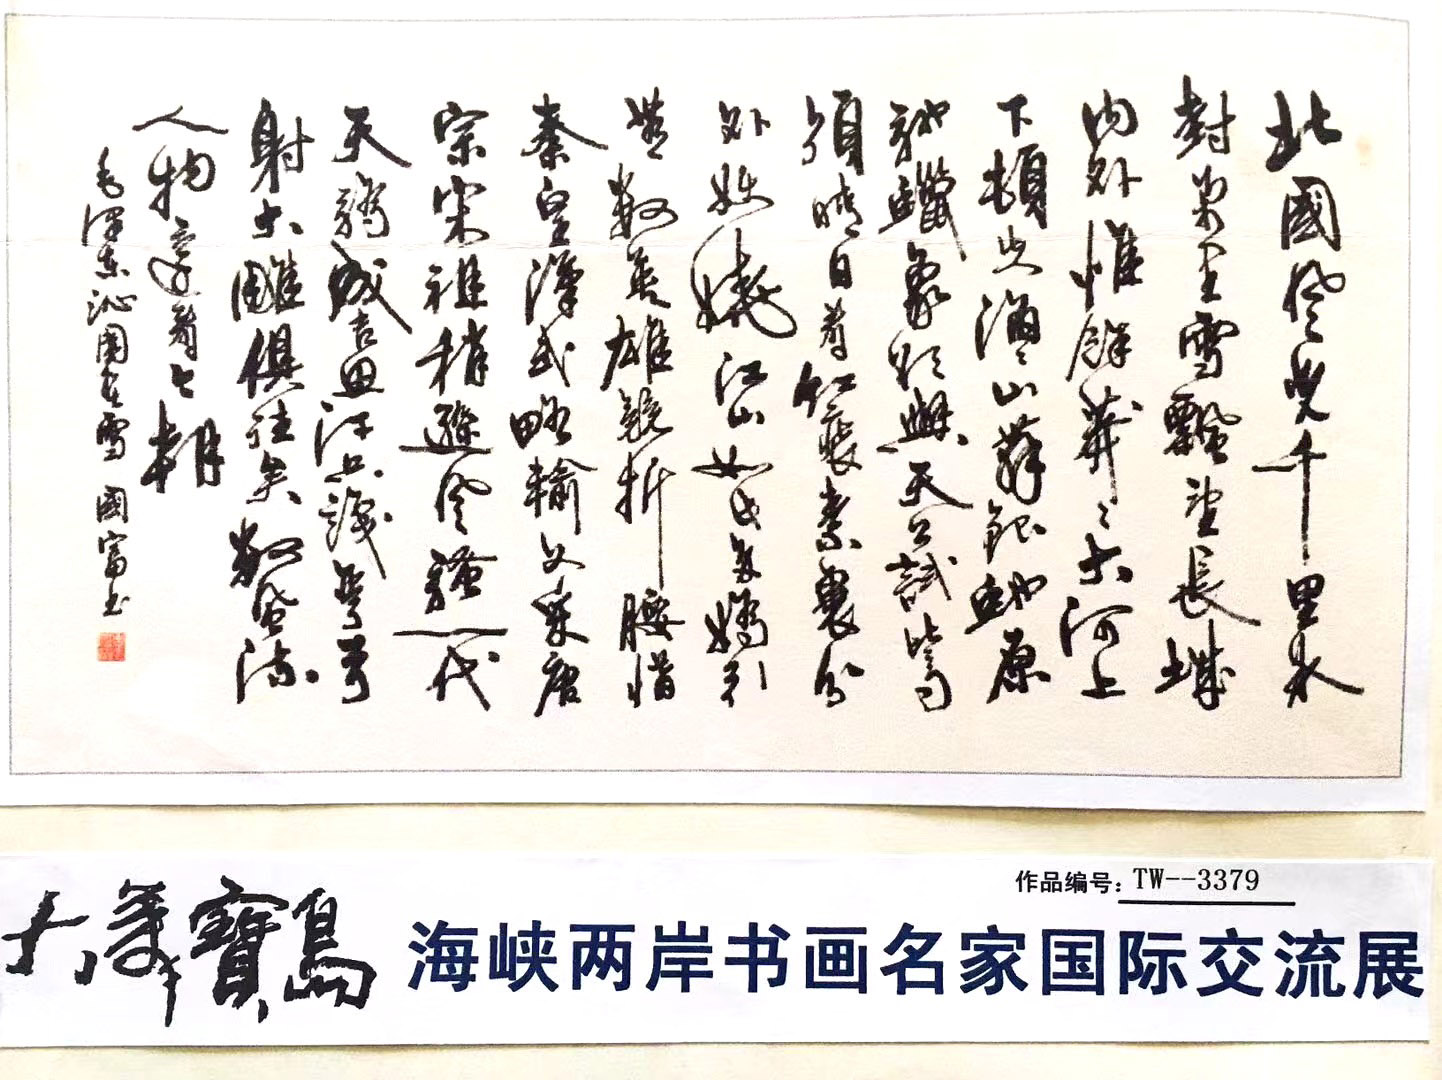 北國風光千里冰
封萬里雪飄望長城
內外惟餘莽〻大河上
下頓失滔〻山舞銀蛇原
馳蠟象欲與天公試比高
須晴日看紅裝素裹分
外妖嬈江山如此多嬌引
無數英雄競折腰惜
秦皇漢武略輸文采唐
宗宋祖稍遜風騷一代
天驕成吉思汗只識彎弓
射大雕俱往矣數風流
人物還看今朝
毛澤東沁園春雪 國富书
作品编号：TW--3379
大美寶島 海峡两岸书画名家国际交流展